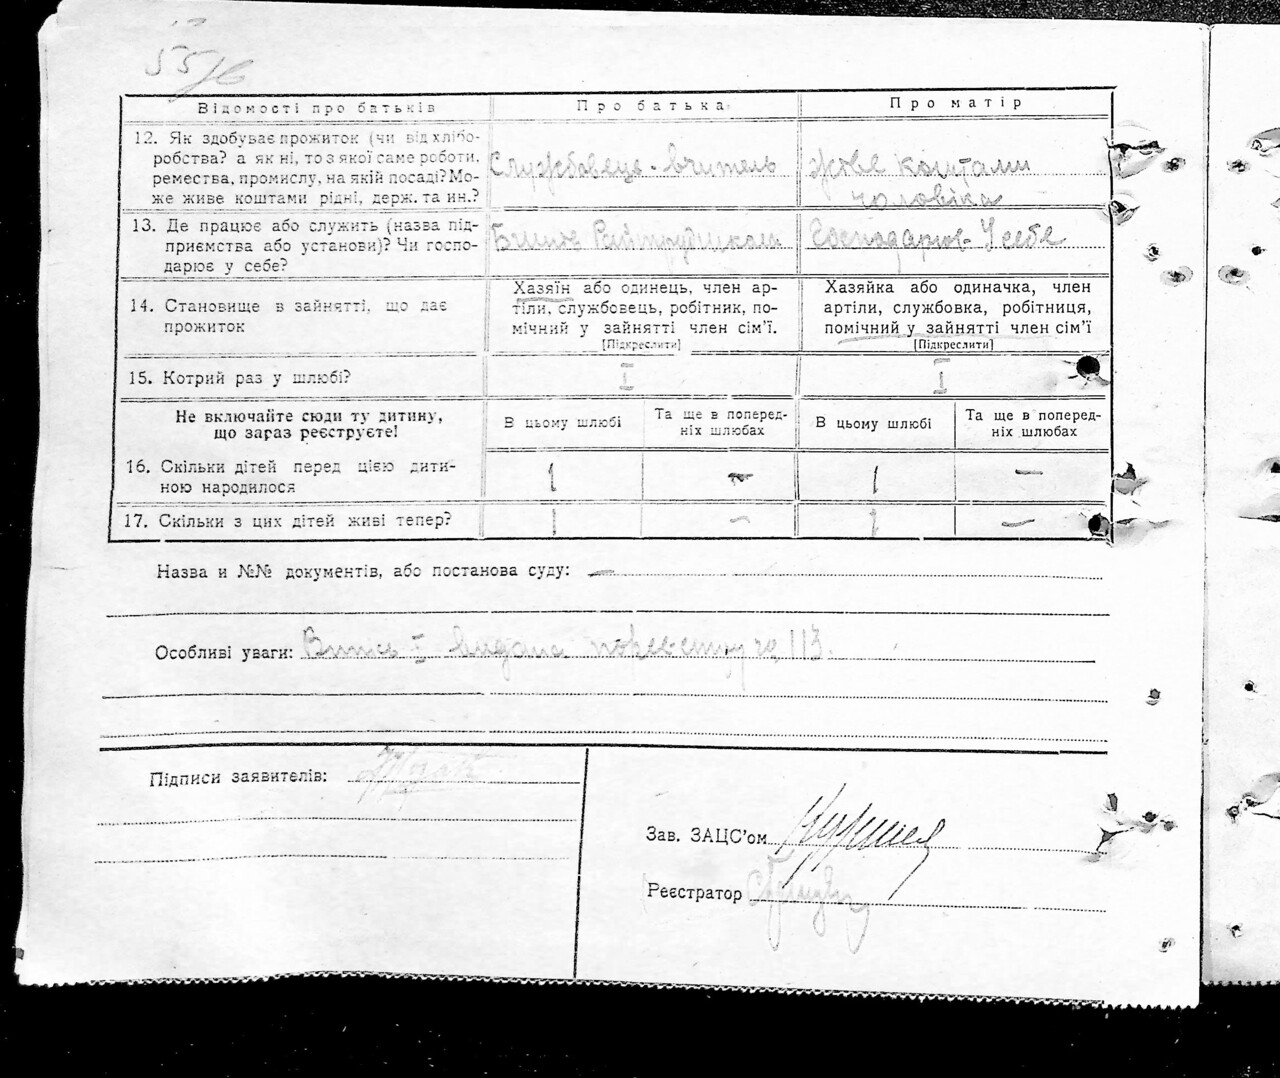 55/в
Відомості про батьків Про батька Про матір
12. Як здобуває прожиток (чи від хлібо-
робства? а як ні, то з якої саме роботи,
ремества, промислу, на якій посаді? Мо-
же живе коштами рідні, держ. та ин.?
Службовець - вчитель
живе коштами
чоловіка
13. Де працює або служить (назва під-
приємства або установи)? Чи госпо-
дарює у себе?
Райтрудшкола
Господарює у себе
14. Становище в зайнятті, що дає
прожиток
Хазяїн або одинець, член ар-
тіли, службовець, робітник, по-
мічний у зайнятті член сім'ї.
[Підкреслити]
Хазяйка або одиначка, член
артіли, службовка, робітниця,
помічний у зайнятті член сім'ї
[Підкреслити]
15. Котрий раз у шлюбі? I I
Не включайте сюди ту дитину,
що зараз реєструєте!
В цьому шлюбі
Та ще в поперед-
ніх шлюбах
В цьому шлюбі
Та ще в поперед-
ніх шлюбах
16. Скільки дітей перед цією дити-
ною народилося
1 — 1 —
17. Скільки з цих дітей живі тепер? 1 — 1 —
Назва и №№ документів, або постанова суду: —
Особливі уваги: Випис I видана по реєстру за 113.
Підписи заявителів:
Зав. ЗАЦС'ом
Реєстратор